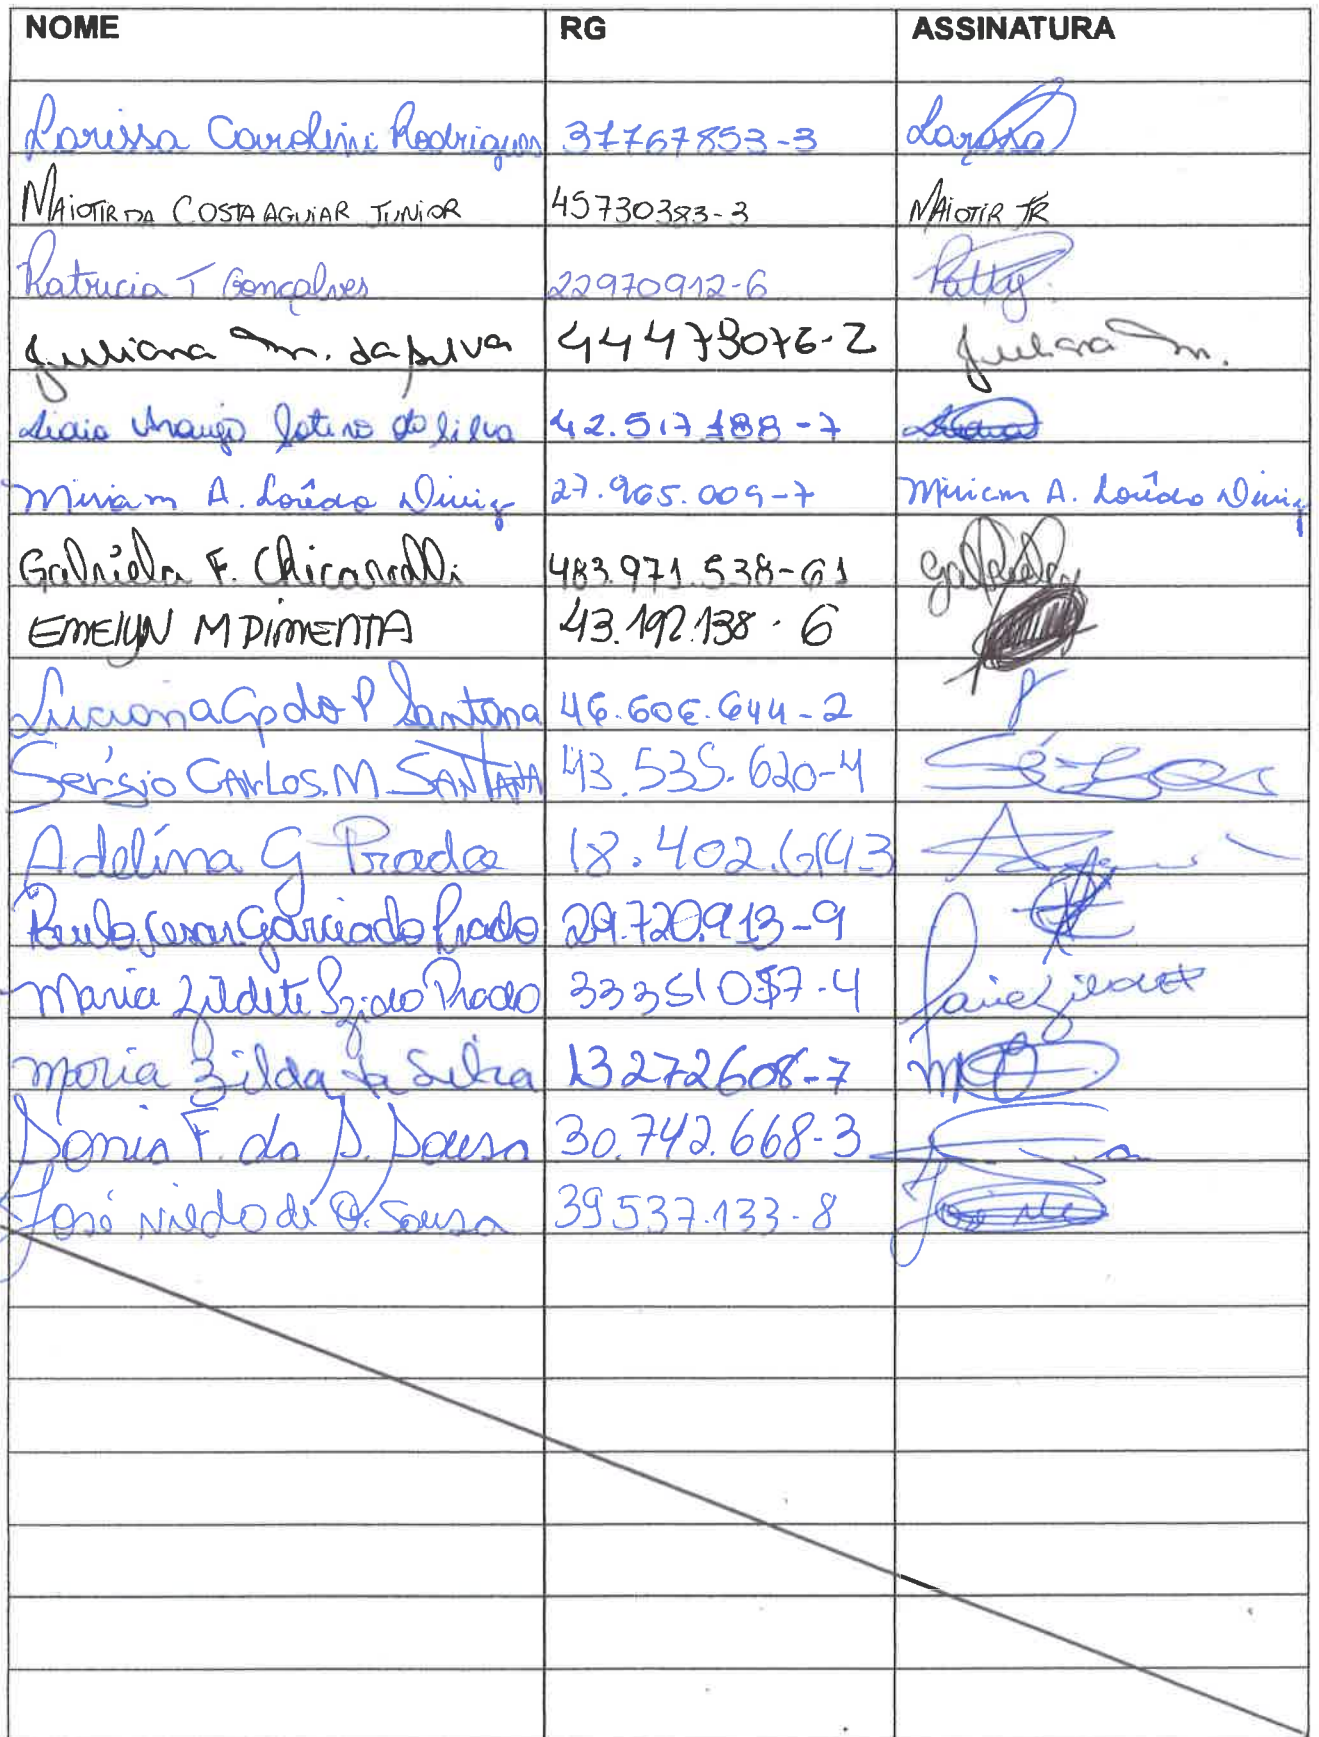 NOME RG ASSINATURA
Larissa Caroline Rodrigues 37767853-3 Larissa
NAIOTIR DA COSTA AGUIAR JUNIOR 45730383-3 NAIOTIR JR
Patricia T Gonçalves 22970912-6 Patty
Juliana M. da Silva 44473076-2 Juliana M.
Araujo da Silva 42.517.188-7
Miriam A. Lorêdo Diniz 27.965.009-7 Miriam A. Lorêdo Diniz
Gabriela F. Chicaralli 483.971.538-61 Gabriela
EMELYN M PIMENTA 43.192.138-6
Luciana G do P Santana 46.606.644-2
Sergio CARLOS.M SANTANA 43.535.620-4
Adelina G Prado 18.402.6143
Paulo Cesar Garcia do Prado 29.720.913-9
Maria Zildete Prado 33351057-4
Maria Zilda da Silva 13272608-7
Sonia F. da S. Sousa 30.742.668-3
José Nildo de O. Sousa 39537.133-8